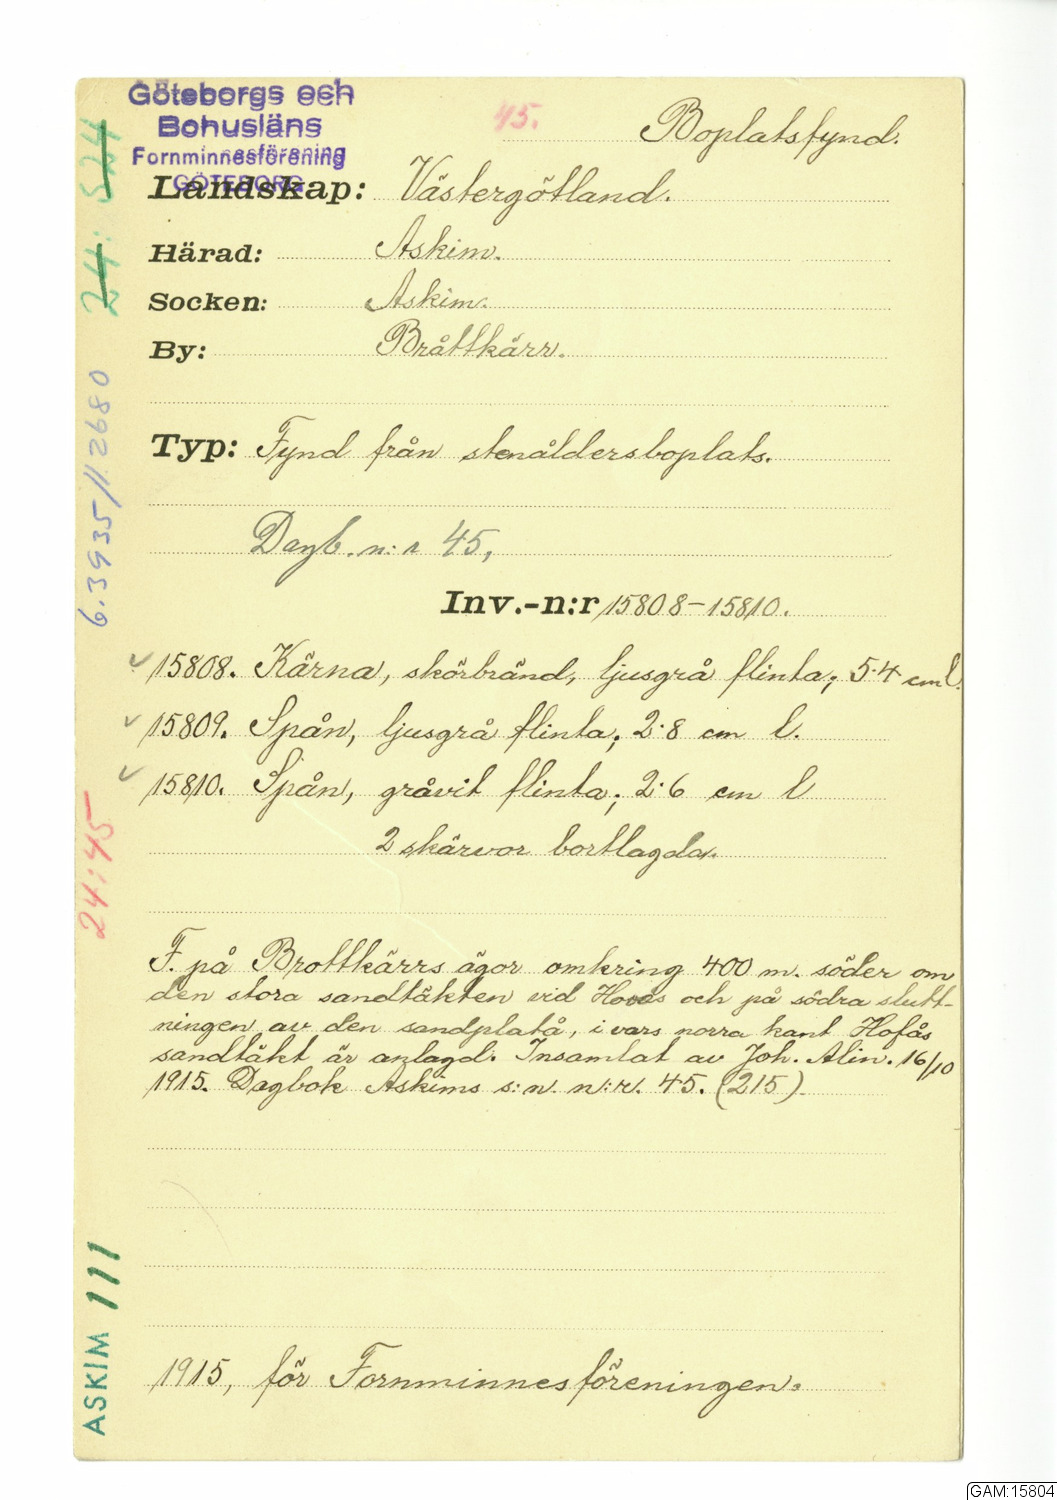 Göteborgs och
Bohusläns
Fornminnesförening
GÖTEBORG
45.
Boplatsfynd.
Landskap: Västergötland.
Härad: Askim.
Socken: Askim.
By: Bråttkärr.
Typ: Fynd från stenåldersboplats.
Dagb. n:r 45,
Inv.-n:r 15808-15810.
15808. Kärna, skörbränd, ljusgrå flinta; 5.4 cm l.
15809. Spån, ljusgrå flinta; 2.8 cm l.
15810. Spån, gråvit flinta; 2.6 cm l
2 skärvor bortlagda.
F. på Brottkärrs ägor omkring 400 m. söder om
den stora sandtäkten vid Hovås och på södra slutt-
ningen av den sandplatå, i vars norra kant Hofås
sandtäkt är anlagd. Insamlat av Joh. Alin. 16/10
1915. Dagbok Askims s:n. n:r. 45. (215)
1915, för Fornminnesföreningen.
24: 524
6.3935/1.2680
24:45
ASKIM 111
GAM:15804